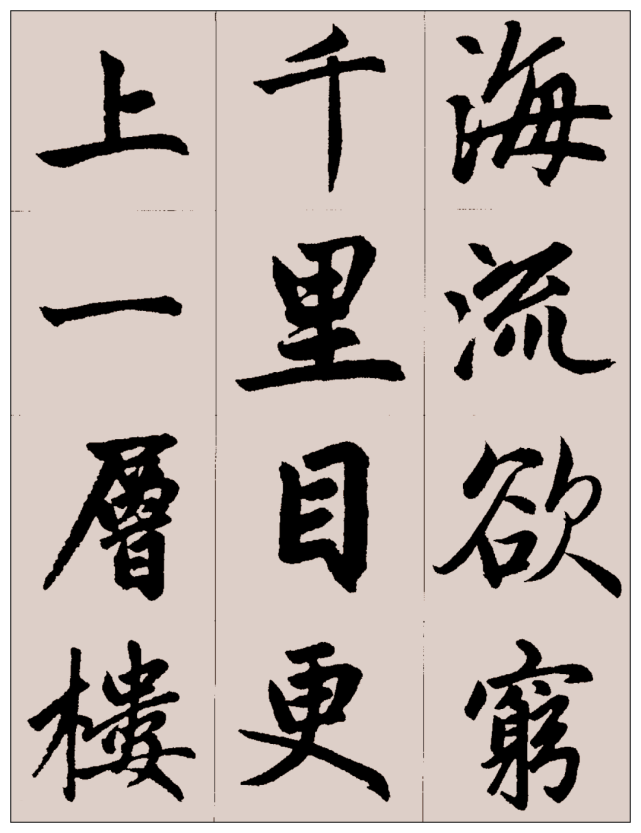 海流欲窮
千里目更
上一層樓